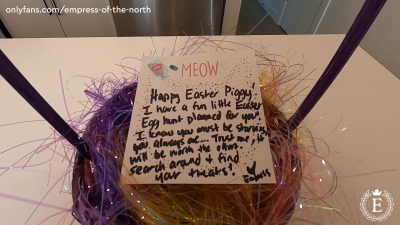 onlyfans.com/empress-of-the-north
MEOW
Happy Easter Piggy!
I have a fun little Easter
Egg hunt planned for you!
I know you must be starving
you always are... Trust me, it
will be worth the effort
search around & find
your treats!
Empress
E